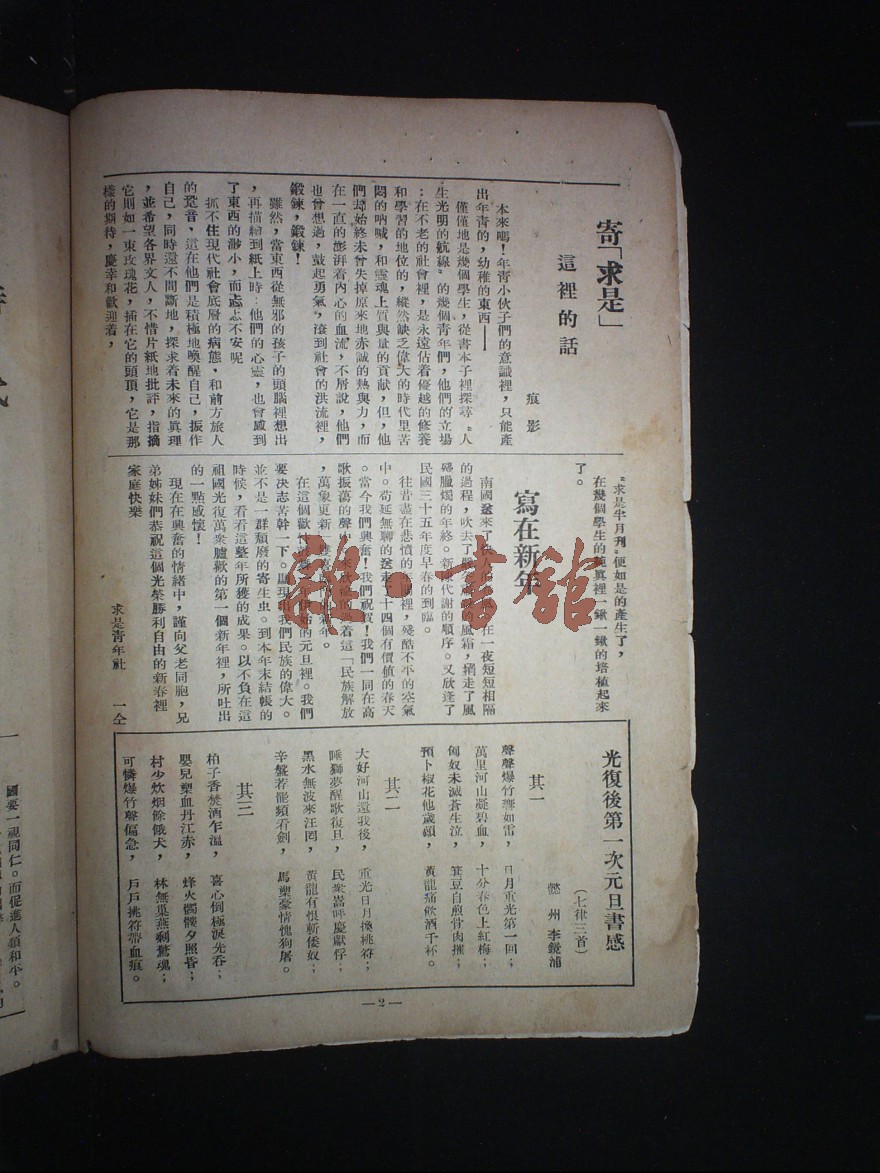 寄「求是」
這裡的話
痕影
本來嗎！年靑小伙子們的意識裡，只能產
出年靑的，幼稚的東西——
僅僅地是幾個學生，從書本子裡探尋〝人
生光明的航線〞的幾個靑年們，他們的立場
：在不老的社會裡，是永遠佔着優越的修養
和學習的地位的，縱然缺乏偉大的時代里苦
悶的吶喊，和靈魂上質與量的貢献，但，他
們却始終未曾失掉原來地赤誠的熱與力，而
在一直的澎湃着內心的血流，不屑說，他們
也曾想過，鼓起勇氣，滾到社會的洪流裡，
鍛鍊，鍛鍊！
雖然，當東西從無邪的孩子的頭腦裡想出
，再描繪到紙上時：他們的心靈，也會感到
了東西的渺小，而忐忑不安呢
抓不住現代社會底層的病態，和前方旅人
的跫音，這在他們是積極地喚醒自己，振作
自己，同時還不間斷地，探求着未來的眞理
，並希望各界文人，不惜片紙地批評，指摘
它則如一束玫瑰花，插在它的頭頂，它是那
樣的期待，慶幸和歡迎着，
〝求是半月刊〞便如是的產生了，
在幾個學生的純眞裡一鍬一鍬的培植起來
了。
寫在新年
南國送來了 人的 在一夜短短相隔
的過程，吹去了嚴 的風霜，掃走了風
殘臘燭的年終。新陳代謝的順序。又欣逢了
民國三十五年度早春的到臨。
往昔盡在悲憤的 裡，殘酷不平的空氣
中。苟延無聊的送走了十四個有價値的春天
。當今我們興奮！我們祝賀！我們一同在高
歌振蕩的聲中，來欣 的過着這「民族解放
，萬象更新」雙 的新年。
在這個歡忭 年伊始的元旦裡。我們
要决志苦幹一下。顯現出我們民族的偉大。
並不是一群頹廢的寄生虫。到本年末結帳的
時候，看看這整年所獲的成果。以不負在這
祖國光復萬衆臚歡的第一個新年裡，所吐出
的一點感懷！
現在在興奮的情緖中，謹向父老同胞，兄
弟姊妹們恭祝這個光榮勝利自由的新春裡
家庭快樂
求是靑年社 一仝
光復後第一次元旦書感
（七律三首）
懿州 李鏡浦
其一
聲聲爆竹響如雷，日月重光第一回；
萬里河山凝碧血，十分春色上紅梅；
匈奴未滅蒼生泣，箕豆自煎骨肉摧；
預卜椒花他歲頌，黃龍痛飮酒千杯。
其二
大好河山還我後，重光日月換桃符；
睡獅夢醒歌復旦，民衆嵩呼慶獻俘；
黑水無波來汪罔，黃龍有恨斬倭奴；
辛盤若罷頻看劍，馬槊豪情愧狗屠。
其三
柏子香焚酒乍溫，喜心倒極淚先呑；
嬰兒槊血丹江赤，烽火髑髏夕照昏；
村少炊烟餘餓犬，林無巢燕剩驚魂；
可憐爆竹聲偏急，戶戶挑符帶血痕。
—2—
國要一視同仁。而促進人類和平。
雜·書館